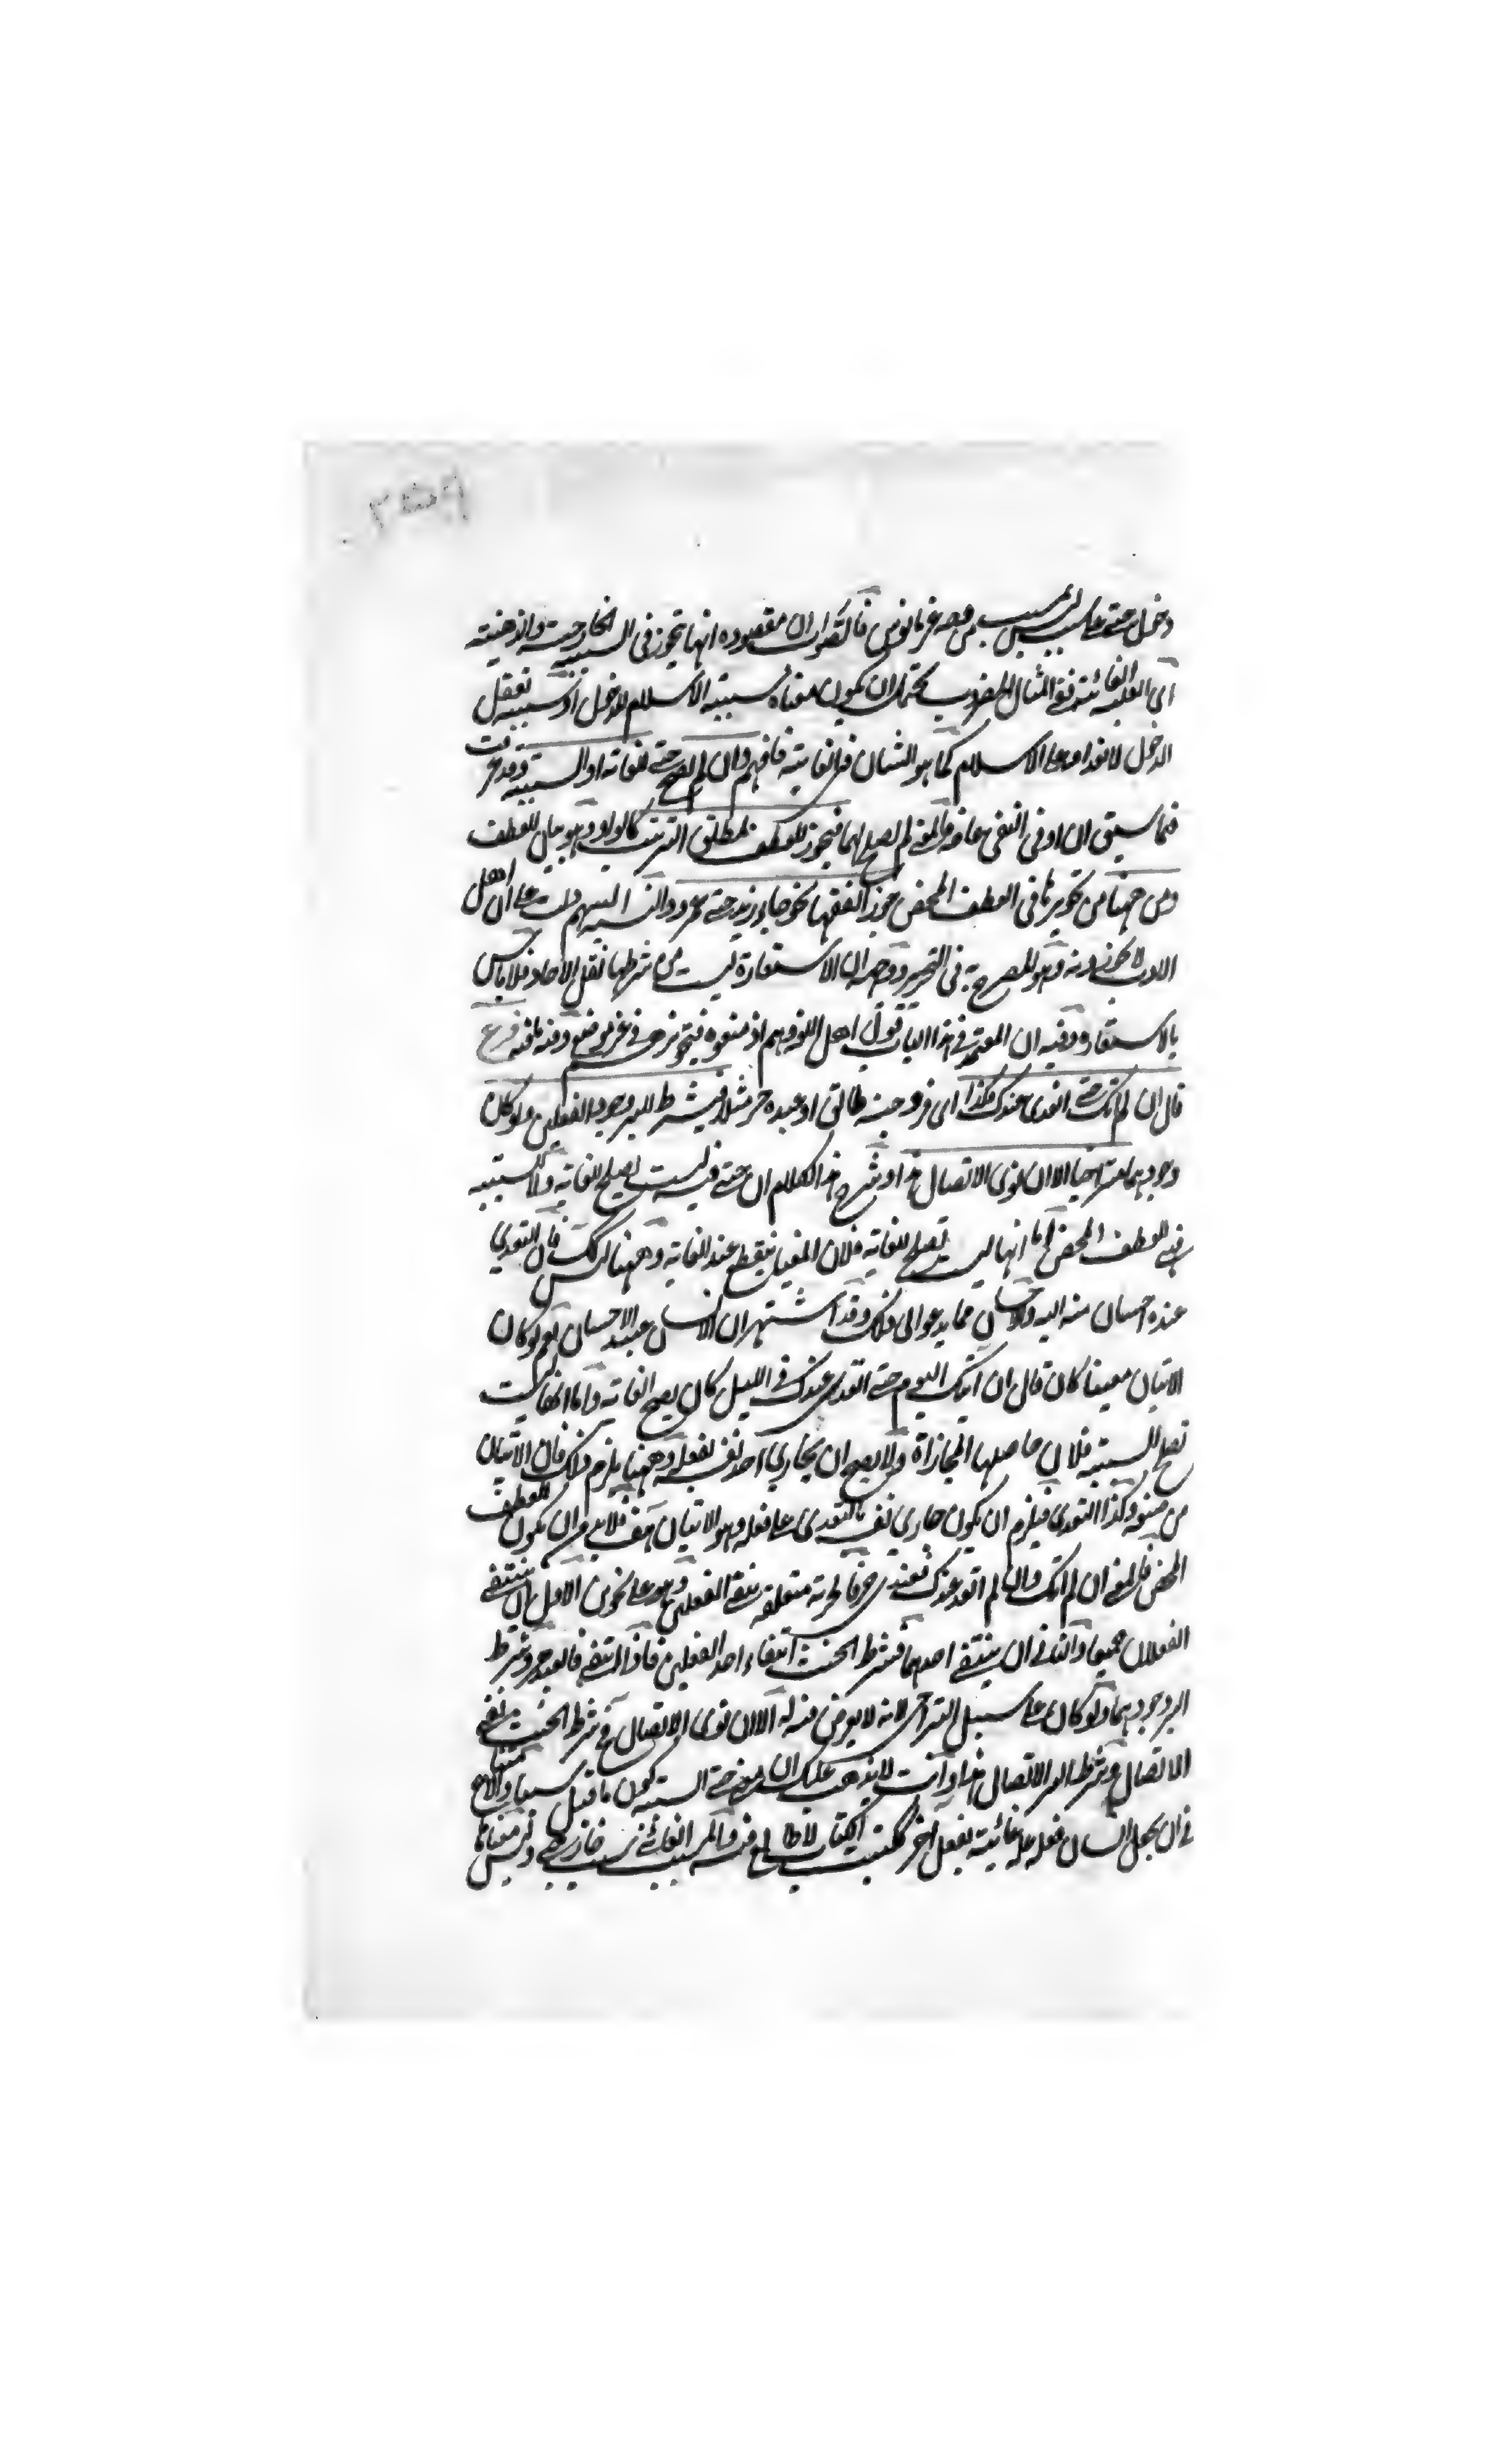 دخول حتى على سبب ليس بمسبب غير مانوس فالصواب ان مقصوده انها تجوز في السببية الخارجية والذهنية
اى العلية الغائية ففى المثال المضروب يحتمل ان يكون معناه سببية الاسلام للدخول او سببية تعقل
الدخول لاقدامه على الاسلام كما هو الشان في الغائية فافهم وان لم يصح حتى للغاية او السببية وقد عرفت
فيما سبق ان او في النفى عامة فالمعنى لم يصلح لهما فتجوز للعطف بمطلق الترتيب كالواو وهو بيان للعطف
ومن ههنا من تجويزها في العطف المحض جوز الفقهاء نحو جاء زيد حتى عمرو والنسبة اليهم دلت على ان اهل
الادب لا يجوزونه وهو المصرح به في التحرير ووجهه ان الاستعارة ليست من شرطها نقل الاحاد فلا باس
بالاستعارة وفيه ان المعتبر في هذا الباب قول اهل اللغة وهم اذ منعوه فتجويزهم في غير موضعه وفيه ما فيه فرع
قال ان لم آتك حتى اتغدى عندك فكذا اى فزوجته طالق او عبده حر مثلا فيشترط للبر وجود الفعلين ولو كان
وجودهما متراخيا الا ان نوى الاتصال هذا وشرح هذا الكلام ان حتى فيه ليست تصلح للغاية ولا للسببية
فهى للعطف المحض اما انها ليست تصلح للغاية فلان المغيا ينقطع عند الغاية وههنا ليس كذلك فان التغدى
عنده احسان منه اليه والاحسان مما يدعو الى ذلك وقد اشتهر ان الانسان عبيد الاحسان نعم لو كان
الاتيان معينا كان قال ان آتيتك اليوم حتى اتغدى عندك في الليل كان يصح الغاية واما انها ليست
تصلح للسببية فلان حاصلها المجازاة ولا يصح ان يجازى احد نفسه بفعله وههنا يلزم ذلك فان الاتيان
من صنعه وكذا التغدى فيلزم ان يكون جازى نفسه بالتغدى على فعله وهو الاتيان هف فلا بد من ان يكون للعطف
المحض فالمعنى ان لم آتك وان لم اتغد عندك فعبدى حر فالحرية متعلقة بنفى الفعلين وهو على نحوين الاول ان ينتفى
الفعلان جميعا والثانى ان ينتفى احدهما فشرط الحنث انتفاء احد الفعلين فاذا انتفى فالعبد حر وشرط
البر وجودهما ولو كان على سبيل التراخى لانه لا تعرض فيه له الا ان نوى الاتصال فح شرط الحنث نفى
الاتصال وشرط البر الاتصال هذا وانت لا يذهب عليك ان معنى حتى السببية كون ما قبل سببا والامتناع
في ان يجعل انسان فعله علة غائية لفعل آخر ككتبت الكتاب لاطالع فيه والمسبب الغائى سبب خارجى وليس معناها